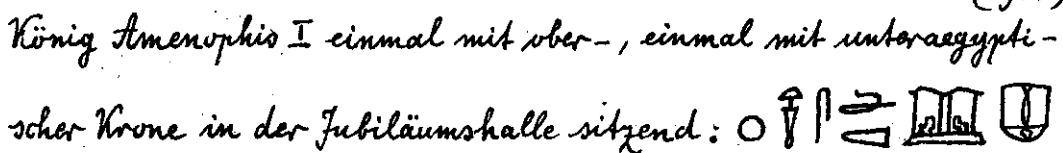 König Amenophis I einmal mit ober-, einmal mit unteraegypti-
scher Krone in der Jubiläumshalle sitzend: